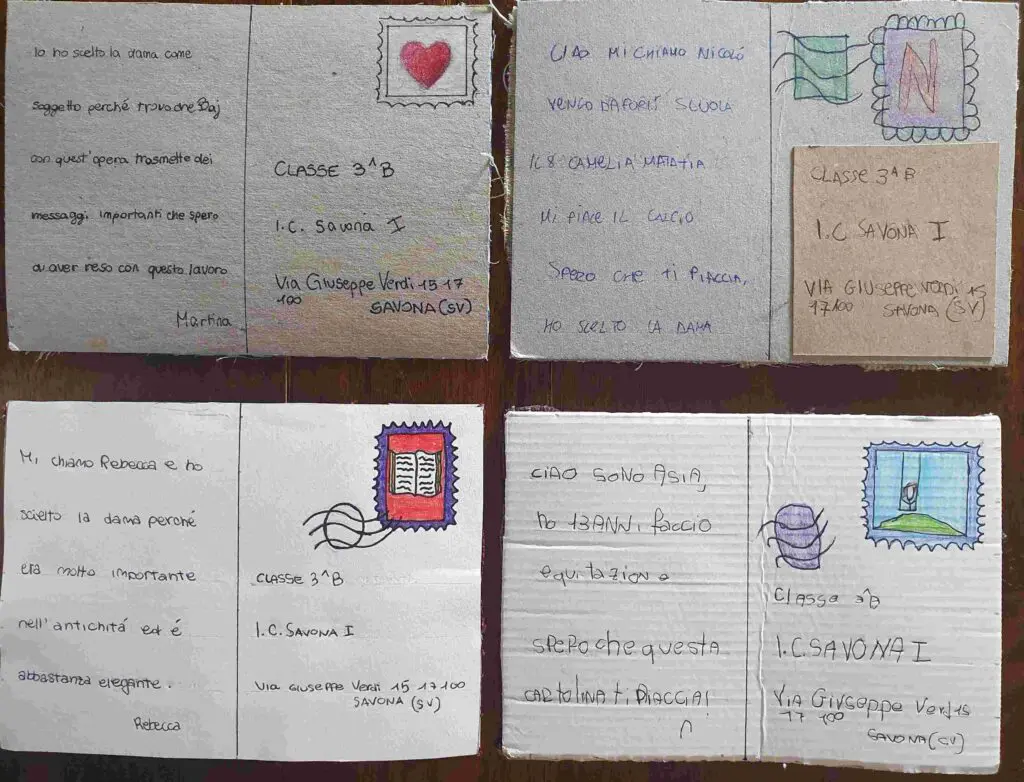 Io ho scelto la dama come
soggetto perché trovo che Baj
con quest'opera trasmette dei
messaggi importanti che spero
di aver reso con questo lavoro
Martina
CLASSE 3^B
I.C. Savona I
Via Giuseppe Verdi 15 17
100
SAVONA (SV)
CIAO MI CHIAMO NICOLÓ
VENGO DA FORLÌ SCUOLA
IC 8 CAMELIA MATATIA
MI PIACE IL CALCIO
SPERO CHE TI PIACCIA,
HO SCELTO LA DAMA
N
CLASSE 3^B
I.C SAVONA I
VIA GIUSEPPE VERDI 15
17100 SAVONA (SV)
Mi chiamo Rebecca e ho
scielto la dama perché
era molto importante
nell'antichitá ed é
abbastanza elegante.
Rebecca
CLASSE 3^B
I.C. SAVONA I
Via Giuseppe Verdi 15 17100
SAVONA (SV)
CIAO SONO ASIA,
ho 13 ANNI, faccio
equitazione
SPERO che questa
CARTOLINA ti PIACCIA!
Classe 3^B
I.C. SAVONA I
VIA Giuseppe Verdi 15
17 100
SAVONA (SV)